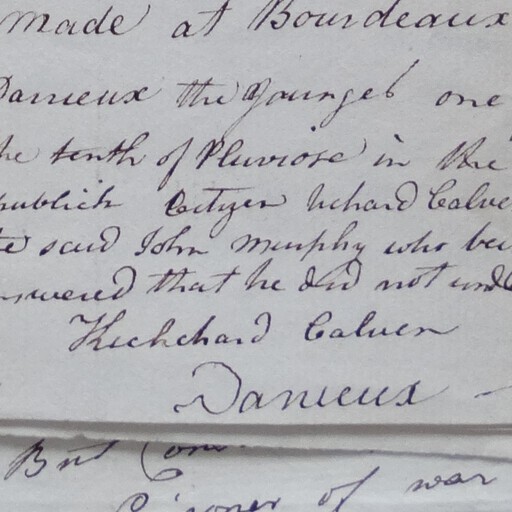 made at Bourdeaux
Darrieux the Younger one
he tenth of Pluviose in the
publick Cityen Richard Calve
te said John Murphy who bei
nswered that he did not unde
Richchard Calven
Darrieux
But Con
of war